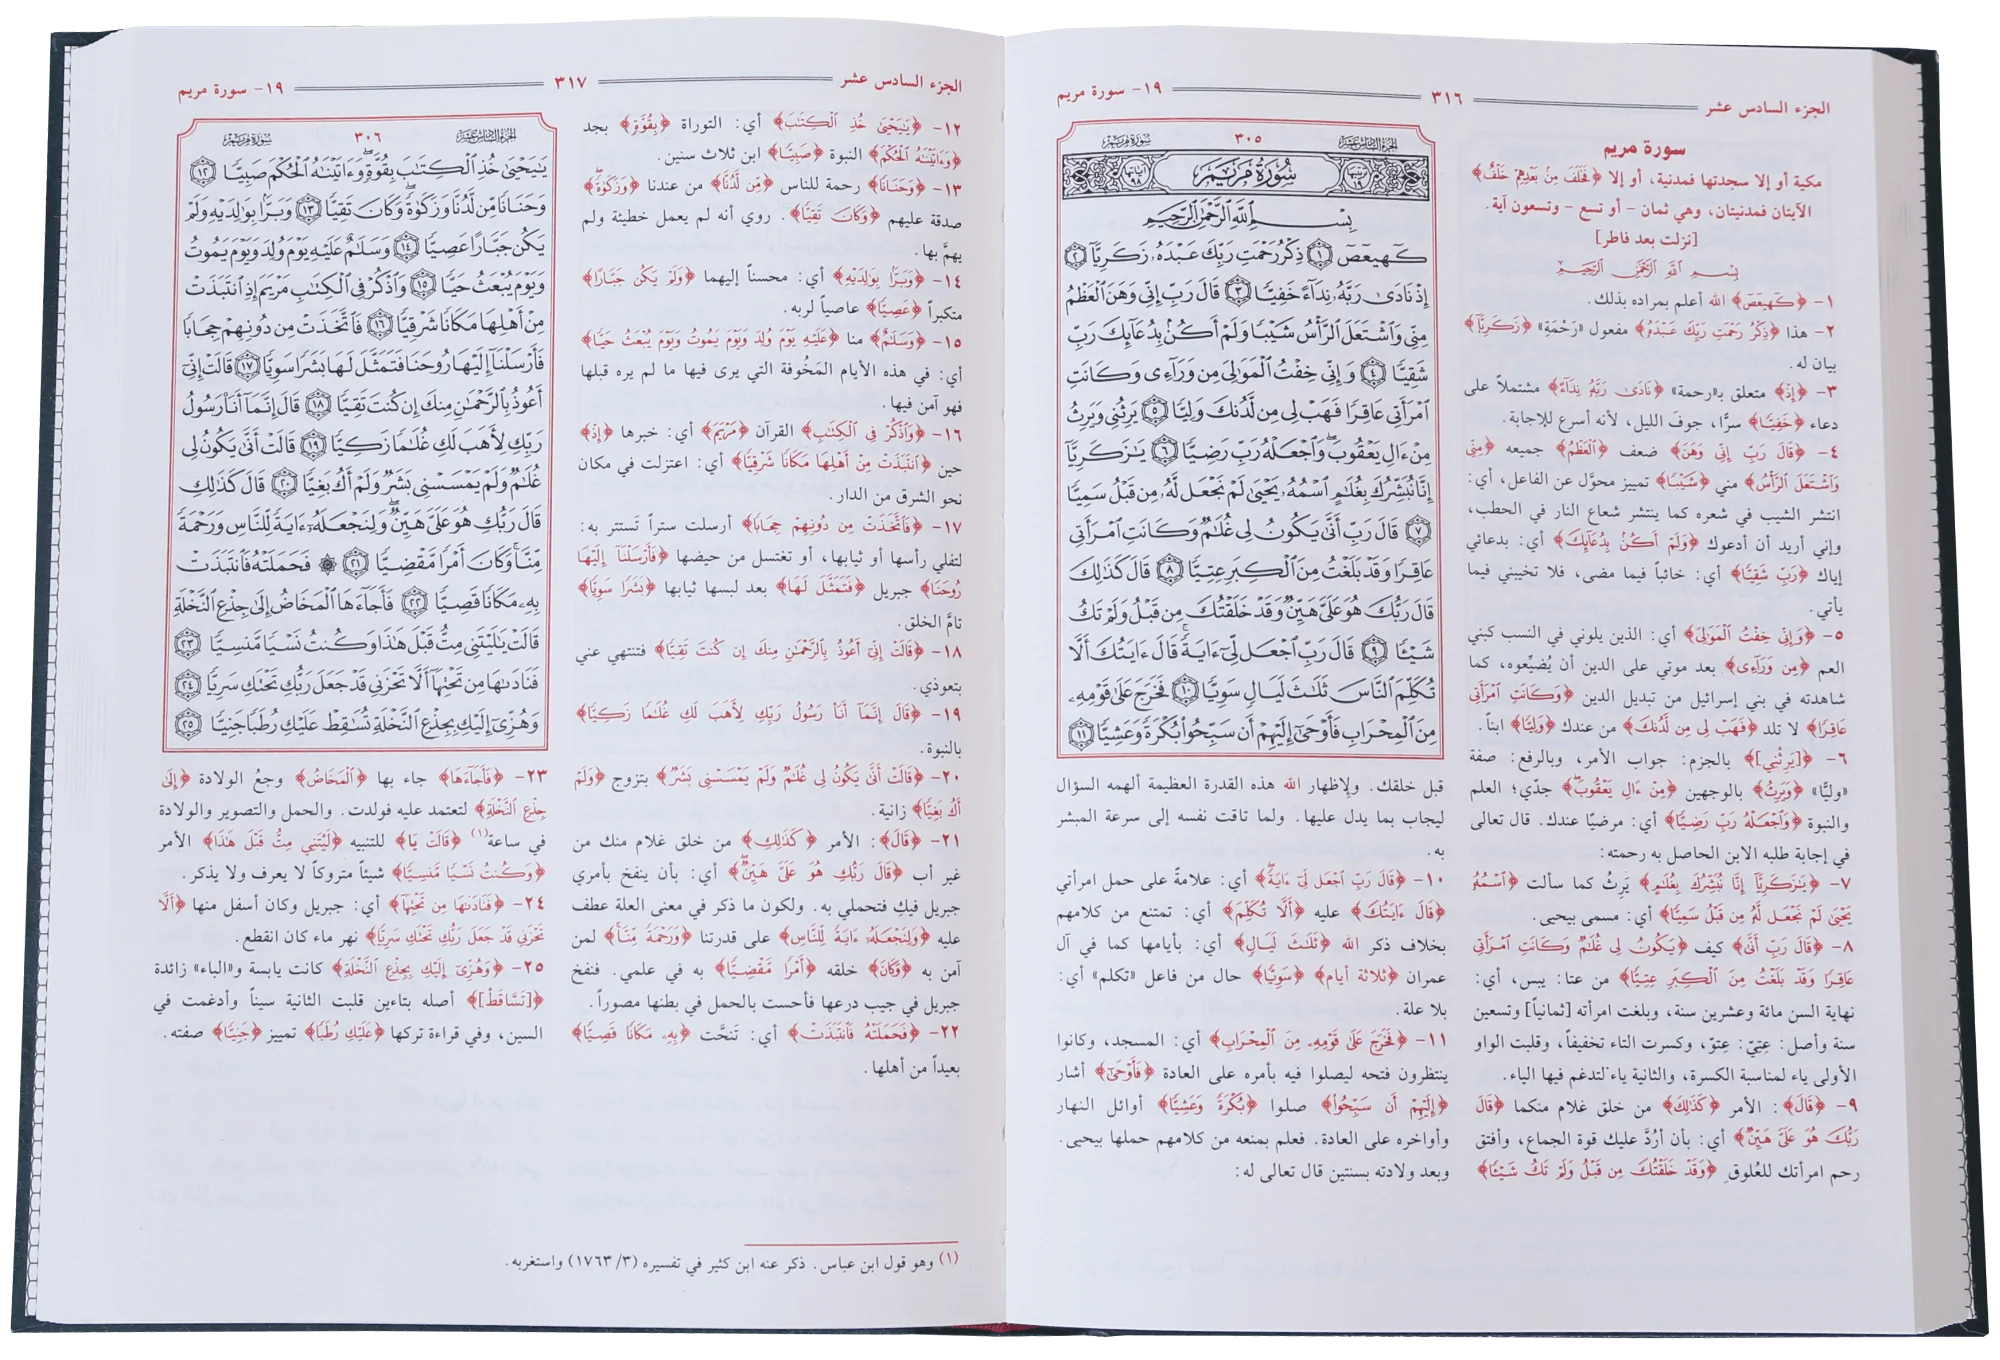 الجزء السادس عشر ٣١٦ ١٩- سورة مريم
سورة مريم
مكية أو إلا سجدتها فمدنية، أو إلا ﴿فَخَلَفَ مِنْ بَعْدِهِمْ خَلْفٌ﴾
الآيتان فمدنيتان، وهي ثمان - أو تسع - وتسعون آية.
[نزلت بعد فاطر]
بِسْمِ اللَّهِ الرَّحْمَٰنِ الرَّحِيمِ
١- ﴿كٓهيعٓصٓ﴾ الله أعلم بمراده بذلك.
٢- هذا ﴿ذِكْرُ رَحْمَتِ رَبِّكَ عَبْدَهُ﴾ مفعول «رَحْمَةِ» ﴿زَكَرِيَّا﴾
بيان له.
٣- ﴿إِذْ﴾ متعلق بـ«رحمة» ﴿نَادَىٰ رَبَّهُ نِدَآءً﴾ مشتملاً على
دعاء ﴿خَفِيًّا﴾ سرًّا، جوفَ الليل، لأنه أسرع للإجابة.
٤- ﴿قَالَ رَبِّ إِنِّي وَهَنَ﴾ ضعف ﴿الْعَظْمُ﴾ جميعه ﴿مِنِّي
وَاشْتَعَلَ الرَّأْسُ﴾ مني ﴿شَيْبًا﴾ تمييز محوَّل عن الفاعل، أي:
انتشر الشيب في شعره كما ينتشر شعاع النار في الحطب،
وإني أريد أن أدعوك ﴿وَلَمْ أَكُنْ بِدُعَآئِكَ﴾ أي: بدعائي
إياك ﴿رَبِّ شَقِيًّا﴾ أي: خائباً فيما مضى، فلا تخيبني فيما
يأتي.
٥- ﴿وَإِنِّي خِفْتُ الْمَوَالِيَ﴾ أي: الذين يلوني في النسب كبني
العم ﴿مِن وَرَآءِي﴾ بعد موتي على الدين أن يُضيِّعوه، كما
شاهدته في بني إسرائيل من تبديل الدين ﴿وَكَانَتِ امْرَأَتِي
عَاقِرًا﴾ لا تلد ﴿فَهَبْ لِي مِن لَّدُنكَ﴾ من عندك ﴿وَلِيًّا﴾ ابناً.
٦- ﴿[يَرِثْنِي]﴾ بالجزم: جواب الأمر، وبالرفع: صفة
«وليًّا» ﴿وَيَرِثُ﴾ بالوجهين ﴿مِنْ ءَالِ يَعْقُوبَ﴾ جدّي؛ العلم
والنبوة ﴿وَاجْعَلْهُ رَبِّ رَضِيًّا﴾ أي: مرضيًا عندك. قال تعالى
في إجابة طلبه الابن الحاصل به رحمته:
٧- ﴿يَٰزَكَرِيَّآ إِنَّا نُبَشِّرُكَ بِغُلَٰمٍ﴾ يَرِثُ كما سألت ﴿اسْمُهُ
يَحْيَىٰ لَمْ نَجْعَل لَّهُ مِن قَبْلُ سَمِيًّا﴾ أي: مسمى بيحيى.
٨- ﴿قَالَ رَبِّ أَنَّىٰ﴾ كيف ﴿يَكُونُ لِي غُلَٰمٌ وَكَانَتِ امْرَأَتِي
عَاقِرًا وَقَدْ بَلَغْتُ مِنَ الْكِبَرِ عِتِيًّا﴾ من عتا: يبس، أي:
نهاية السن مائة وعشرين سنة، وبلغت امرأته [ثمانياً] وتسعين
سنة وأصل: عِتِيّ: عِتوّ، وكسرت التاء تخفيفاً، وقلبت الواو
الأولى ياء لمناسبة الكسرة، والثانية ياء لتدغم فيها الياء.
٩- ﴿قَالَ﴾: الأمر ﴿كَذَٰلِكَ﴾ من خلق غلام منكما ﴿قَالَ
رَبُّكَ هُوَ عَلَيَّ هَيِّنٌ﴾ أي: بأن أرُدَّ عليك قوة الجماع، وأفتق
رحم امرأتك للعُلوق ﴿وَقَدْ خَلَقْتُكَ مِن قَبْلُ وَلَمْ تَكُ شَيْئًا﴾
الجزء السادس عشر ٣٠٥ سورة مريم
ترتيبها ١٩ سُورَةُ مَرْيَمَ آياتها ٩٨
بِسْمِ اللَّهِ الرَّحْمَٰنِ الرَّحِيمِ
كٓهيعٓصٓ ١ ذِكْرُ رَحْمَتِ رَبِّكَ عَبْدَهُ زَكَرِيَّآ ٢
إِذْ نَادَىٰ رَبَّهُ نِدَآءً خَفِيًّا ٣ قَالَ رَبِّ إِنِّي وَهَنَ الْعَظْمُ
مِنِّي وَاشْتَعَلَ الرَّأْسُ شَيْبًا وَلَمْ أَكُنۢ بِدُعَآئِكَ رَبِّ
شَقِيًّا ٤ وَإِنِّي خِفْتُ الْمَوَٰلِيَ مِن وَرَآءِي وَكَانَتِ
امْرَأَتِي عَاقِرًا فَهَبْ لِي مِن لَّدُنكَ وَلِيًّا ٥ يَرِثُنِي وَيَرِثُ
مِنْ ءَالِ يَعْقُوبَ وَاجْعَلْهُ رَبِّ رَضِيًّا ٦ يَٰزَكَرِيَّآ
إِنَّا نُبَشِّرُكَ بِغُلَٰمٍ اسْمُهُ يَحْيَىٰ لَمْ نَجْعَل لَّهُ مِن قَبْلُ سَمِيًّا
٧ قَالَ رَبِّ أَنَّىٰ يَكُونُ لِي غُلَٰمٌ وَكَانَتِ امْرَأَتِي
عَاقِرًا وَقَدْ بَلَغْتُ مِنَ الْكِبَرِ عِتِيًّا ٨ قَالَ كَذَٰلِكَ
قَالَ رَبُّكَ هُوَ عَلَيَّ هَيِّنٌ وَقَدْ خَلَقْتُكَ مِن قَبْلُ وَلَمْ تَكُ
شَيْئًا ٩ قَالَ رَبِّ اجْعَل لِّي ءَايَةً قَالَ ءَايَتُكَ أَلَّا
تُكَلِّمَ النَّاسَ ثَلَٰثَ لَيَالٍ سَوِيًّا ١٠ فَخَرَجَ عَلَىٰ قَوْمِهِ
مِنَ الْمِحْرَابِ فَأَوْحَىٰٓ إِلَيْهِمْ أَن سَبِّحُوا بُكْرَةً وَعَشِيًّا ١١
قبل خلقك. ولإظهار الله هذه القدرة العظيمة ألهمه السؤال
ليجاب بما يدل عليها. ولما تاقت نفسه إلى سرعة المبشر
به.
١٠- ﴿قَالَ رَبِّ اجْعَل لِّي ءَايَةً﴾ أي: علامةً على حمل امرأتي
﴿قَالَ ءَايَتُكَ﴾ عليه ﴿أَلَّا تُكَلِّمَ﴾ أي: تمتنع من كلامهم
بخلاف ذكر الله ﴿ثَلَٰثَ لَيَالٍ﴾ أي: بأيامها كما في آل
عمران ﴿ثلاثة أيام﴾ ﴿سَوِيًّا﴾ حال من فاعل «تكلم» أي:
بلا علة.
١١- ﴿فَخَرَجَ عَلَىٰ قَوْمِهِ مِنَ الْمِحْرَابِ﴾ أي: المسجد، وكانوا
ينتظرون فتحه ليصلوا فيه بأمره على العادة ﴿فَأَوْحَىٰٓ﴾ أشار
﴿إِلَيْهِمْ أَن سَبِّحُوا﴾ صلوا ﴿بُكْرَةً وَعَشِيًّا﴾ أوائل النهار
وأواخره على العادة. فعلم بمنعه من كلامهم حملها بيحيى.
وبعد ولادته بسنتين قال تعالى له:
الجزء السادس عشر ٣١٧ ١٩- سورة مريم
١٢- ﴿يَٰيَحْيَىٰ خُذِ الْكِتَٰبَ﴾ أي: التوراة ﴿بِقُوَّةٍ﴾ بجد
﴿وَءَاتَيْنَٰهُ الْحُكْمَ﴾ النبوة ﴿صَبِيًّا﴾ ابن ثلاث سنين.
١٣- ﴿وَحَنَانًا﴾ رحمة للناس ﴿مِّن لَّدُنَّا﴾ من عندنا ﴿وَزَكَوٰةً﴾
صدقة عليهم ﴿وَكَانَ تَقِيًّا﴾. روي أنه لم يعمل خطيئة ولم
يهمَّ بها.
١٤- ﴿وَبَرًّا بِوَٰلِدَيْهِ﴾ أي: محسناً إليهما ﴿وَلَمْ يَكُن جَبَّارًا﴾
متكبراً ﴿عَصِيًّا﴾ عاصياً لربه.
١٥- ﴿وَسَلَٰمٌ﴾ منا ﴿عَلَيْهِ يَوْمَ وُلِدَ وَيَوْمَ يَمُوتُ وَيَوْمَ يُبْعَثُ حَيًّا﴾
أي: في هذه الأيام المَخُوفة التي يرى فيها ما لم يره قبلها
فهو آمن فيها.
١٦- ﴿وَاذْكُرْ فِي الْكِتَٰبِ﴾ القرآن ﴿مَرْيَمَ﴾ أي: خبرها ﴿إِذِ﴾
حين ﴿انتَبَذَتْ مِنْ أَهْلِهَا مَكَانًا شَرْقِيًّا﴾ أي: اعتزلت في مكان
نحو الشرق من الدار.
١٧- ﴿فَاتَّخَذَتْ مِن دُونِهِمْ حِجَابًا﴾ أرسلت ستراً تَستتر به:
لتفلي رأسها أو ثيابها، أو تغتسل من حيضها ﴿فَأَرْسَلْنَآ إِلَيْهَا
رُوحَنَا﴾ جبريل ﴿فَتَمَثَّلَ لَهَا﴾ بعد لبسها ثيابها ﴿بَشَرًا سَوِيًّا﴾
تامَّ الخلق.
١٨- ﴿قَالَتْ إِنِّي أَعُوذُ بِالرَّحْمَٰنِ مِنكَ إِن كُنتَ تَقِيًّا﴾ فتنتهي عني
بتعوذي.
١٩- ﴿قَالَ إِنَّمَآ أَنَا۠ رَسُولُ رَبِّكِ لِأَهَبَ لَكِ غُلَٰمًا زَكِيًّا﴾
بالنبوة.
٢٠- ﴿قَالَتْ أَنَّىٰ يَكُونُ لِي غُلَٰمٌ وَلَمْ يَمْسَسْنِي بَشَرٌ﴾ بتزوج ﴿وَلَمْ
أَكُ بَغِيًّا﴾ زانية.
٢١- ﴿قَالَ﴾: الأمر ﴿كَذَٰلِكِ﴾ من خلق غلام منك من
غير أب ﴿قَالَ رَبُّكِ هُوَ عَلَيَّ هَيِّنٌ﴾ أي: بأن ينفخ بأمري
جبريل فيكِ فتحملي به. ولكون ما ذكر في معنى العلة عطف
عليه ﴿وَلِنَجْعَلَهُ ءَايَةً لِّلنَّاسِ﴾ على قدرتنا ﴿وَرَحْمَةً مِّنَّا﴾ لمن
آمن به ﴿وَكَانَ﴾ خلقه ﴿أَمْرًا مَّقْضِيًّا﴾ به في علمي. فنفخ
جبريل في جيب درعها فأحست بالحمل في بطنها مصوراً.
٢٢- ﴿فَحَمَلَتْهُ فَانتَبَذَتْ﴾ أي: تَنحَّت ﴿بِهِ مَكَانًا قَصِيًّا﴾
بعيداً من أهلها.
الجزء السادس عشر ٣٠٦ سورة مريم
يَٰيَحْيَىٰ خُذِ الْكِتَٰبَ بِقُوَّةٍ وَءَاتَيْنَٰهُ الْحُكْمَ صَبِيًّا ١٢
وَحَنَانًا مِّن لَّدُنَّا وَزَكَوٰةً وَكَانَ تَقِيًّا ١٣ وَبَرًّۢا بِوَٰلِدَيْهِ وَلَمْ
يَكُن جَبَّارًا عَصِيًّا ١٤ وَسَلَٰمٌ عَلَيْهِ يَوْمَ وُلِدَ وَيَوْمَ يَمُوتُ
وَيَوْمَ يُبْعَثُ حَيًّا ١٥ وَاذْكُرْ فِي الْكِتَٰبِ مَرْيَمَ إِذِ انتَبَذَتْ
مِنْ أَهْلِهَا مَكَانًا شَرْقِيًّا ١٦ فَاتَّخَذَتْ مِن دُونِهِمْ حِجَابًا
فَأَرْسَلْنَآ إِلَيْهَا رُوحَنَا فَتَمَثَّلَ لَهَا بَشَرًا سَوِيًّا ١٧ قَالَتْ إِنِّي
أَعُوذُ بِالرَّحْمَٰنِ مِنكَ إِن كُنتَ تَقِيًّا ١٨ قَالَ إِنَّمَآ أَنَا۠ رَسُولُ
رَبِّكِ لِأَهَبَ لَكِ غُلَٰمًا زَكِيًّا ١٩ قَالَتْ أَنَّىٰ يَكُونُ لِي
غُلَٰمٌ وَلَمْ يَمْسَسْنِي بَشَرٌ وَلَمْ أَكُ بَغِيًّا ٢٠ قَالَ كَذَٰلِكِ
قَالَ رَبُّكِ هُوَ عَلَيَّ هَيِّنٌ وَلِنَجْعَلَهُ ءَايَةً لِّلنَّاسِ وَرَحْمَةً
مِّنَّا وَكَانَ أَمْرًا مَّقْضِيًّا ٢١ ۞ فَحَمَلَتْهُ فَانتَبَذَتْ
بِهِ مَكَانًا قَصِيًّا ٢٢ فَأَجَآءَهَا الْمَخَاضُ إِلَىٰ جِذْعِ النَّخْلَةِ
قَالَتْ يَٰلَيْتَنِي مِتُّ قَبْلَ هَٰذَا وَكُنتُ نَسْيًا مَّنسِيًّا ٢٣
فَنَادَىٰهَا مِن تَحْتِهَآ أَلَّا تَحْزَنِي قَدْ جَعَلَ رَبُّكِ تَحْتَكِ سَرِيًّا ٢٤
وَهُزِّيٓ إِلَيْكِ بِجِذْعِ النَّخْلَةِ تُسَٰقِطْ عَلَيْكِ رُطَبًا جَنِيًّا ٢٥
٢٣- ﴿فَأَجَآءَهَا﴾ جاء بها ﴿الْمَخَاضُ﴾ وجعُ الولادة ﴿إِلَىٰ
جِذْعِ النَّخْلَةِ﴾ لتعتمد عليه فولدت. والحمل والتصوير والولادة
في ساعة(١) ﴿قَالَتْ يَا﴾ للتنبيه ﴿لَيْتَنِي مِتُّ قَبْلَ هَٰذَا﴾ الأمر
﴿وَكُنتُ نَسْيًا مَّنسِيًّا﴾ شيئاً متروكاً لا يعرف ولا يذكر.
٢٤- ﴿فَنَادَىٰهَا مِن تَحْتِهَآ﴾ أي: جبريل وكان أسفل منها ﴿أَلَّا
تَحْزَنِي قَدْ جَعَلَ رَبُّكِ تَحْتَكِ سَرِيًّا﴾ نهر ماء كان انقطع.
٢٥- ﴿وَهُزِّيٓ إِلَيْكِ بِجِذْعِ النَّخْلَةِ﴾ كانت يابسة و«الباء» زائدة
﴿[تَسَّاقَطْ]﴾ أصله بتاءين قلبت الثانية سيناً وأدغمت في
السين، وفي قراءة تركها ﴿عَلَيْكِ رُطَبًا﴾ تمييز ﴿جَنِيًّا﴾ صفته.
(١) وهو قول ابن عباس. ذكر عنه ابن كثير في تفسيره (٣/ ١٧٦٣) واستغربه.